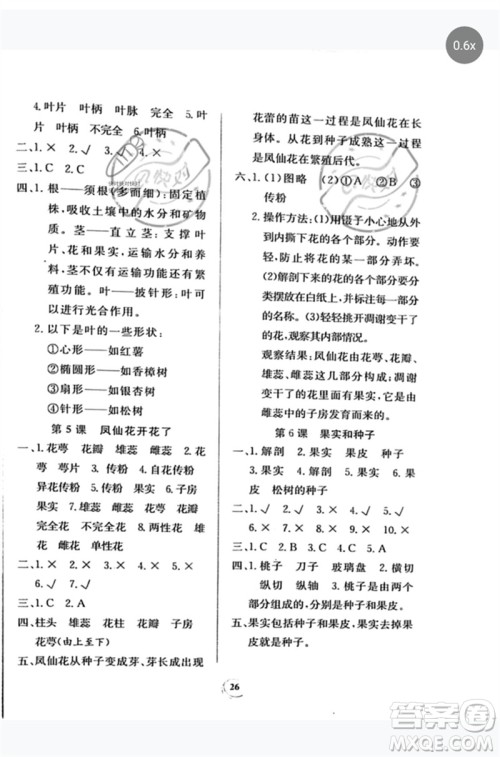 0.6x
4.叶片 叶柄 叶脉 完全 5.叶
片 叶柄 不完全 6.叶柄
二、1.× 2.√ 3.√ 4.√ 5.×
三、1.C 2.C
四、1.根——须根(多而细):固定植
株,吸收土壤中的水分和矿物
质。茎——直立茎:支撑叶子、
花和果实,运输水分和营养物
质,茎不仅有运输功能还有繁
殖功能。叶——披针形:叶子可
以进行光合作用。
2.以下是叶的一些形状:
①心形——如红薯
②椭圆形——如香樟树
③扇形——如银杏树
④针形——如松树
第5课 凤仙花开花了
一、1.花萼 花瓣 雄蕊 雌蕊 2.花
萼 叶片 3.传粉 4.自花传粉
异花传粉 5.传粉 果实 6.子房
果实 7.雄蕊 雌蕊 花瓣 花萼
完全花 不完全花 8.两性花 雄
花 雌花 单性花
二、1.× 2.√ 3.√ 4.× 5.√
6.× 7.√
三、1.C 2.A
四、柱头 雄蕊 花柱 花瓣 子房
花萼(由上至下)
五、凤仙花从种子变成芽,芽长成出现
花蕾的苗这一过程是凤仙花在长
身体。从花到种子成熟这一过程
是凤仙花在繁殖后代。
六、1.(1)图略 (2)①A B ②B ③
传粉
2.操作方法:(1)用镊子小心地从外
到内撕下花的各个部分。动作要
轻,防止将花的某一部分弄坏。
(2)将解剖下来的花的各个部分分
类摆放在白纸上,并标出每一部分
的名称。(3)轻轻挑开凋谢变干了的
花,观察其内部情况。
观察结果:凤仙花由花萼、花瓣、
雄蕊、雌蕊四部分组成。凋谢
变干了的花中可以看到果实,果
实是由雌蕊的子房发育来的。
第6课 果实和种子
一、1.解剖 2.果实 果皮 3.种子
4.果皮 松树的种子
二、1.√ 2.× 3.√ 4.√ 5.√ 6.√
7.× 8.× 9.× 10.×
三、1.C 2.A 3.C 4.C 5.B
四、1.桃子 刀子 玻璃盘 2.横切
纵切 纵轴 3.桃子由两大部
分组成,分别是种子和果皮。
五、果实包括种子和果皮,果实中除果
皮就是种子。
26
答案圈
MXQE.COM